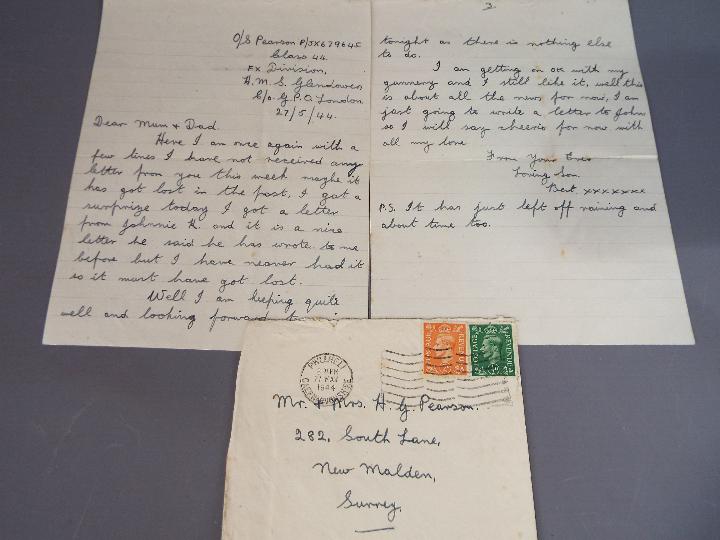 O/S Pearson P/JX679645
Class 44.
FX Division,
H.M.S. Glendower
C/o G.P.O. London
27/5/44.
Dear Mum & Dad.
Here I am once again with a
few lines I have not received any
letter from you this week maybe it
has got lost in the post, I got a
surprize today I got a letter
from Johnnie H. and it is a nice
letter he said he has wrote to me
before but I have neaver had it
so it must have got lost.
Well I am keeping quite
well and looking forward
2
tonight as there is nothing else
to do.
I am getting on ok with my
gunnery and I still like it, well this
is about all the news for now, I am
just going to write a letter to John
so I will say cheerio for now with
all my love
From Your Ever
Loving Son.
Bert xxxxxxx
P.S. It has just left off raining and
about time too.
PWLLHELI
27 MAY
1944
CAERNARVONSHIRE
POSTAGE REVENUE
POSTAGE REVENUE
Mr. & Mrs. H. G. Pearson.
282, South Lane,
New Malden,
Surrey.